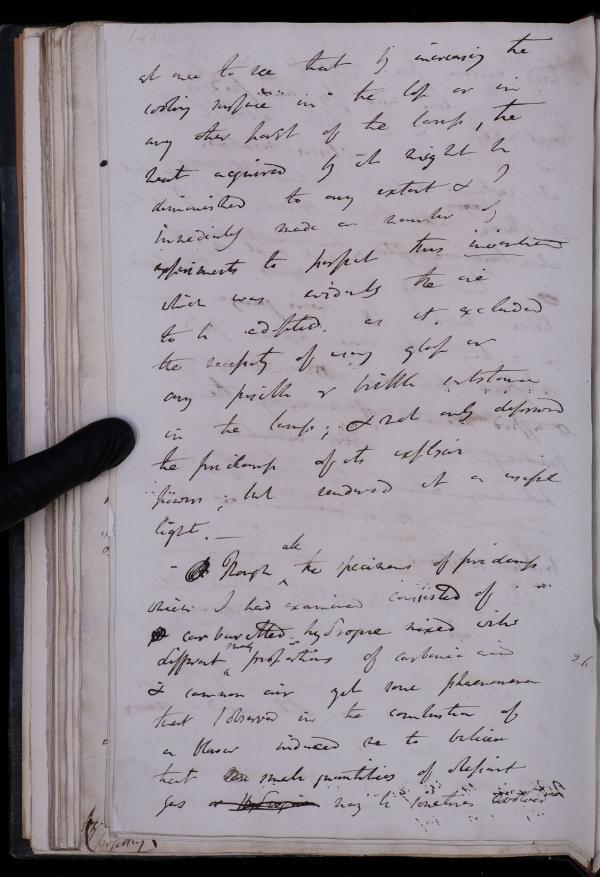 146
at once to see that by increasing the
cooling surface in the top or in
any other part of the lamp, the
heat acquired by it might be
diminished to any extent & I
immediately made a number of
experiments to perfect this invention
which was evidently the one
to be adopted. as it excluded
the necessity of using glass or
any fusible or brittle substance
in the lamp; & not only deprived
the firedamp of its explosive
powers, but rendered it a useful
light. —
- Though all the specimens of firedamp
which I had examined consisted of
carburetted hydrogene mixed with
different small proportions of carbonic acid
& common air yet some phaenomena
that I observed in the combustion of
a blower induced me to believe
that small quantities of olefiant
gas or Hydrogene may be sometimes evolved
26